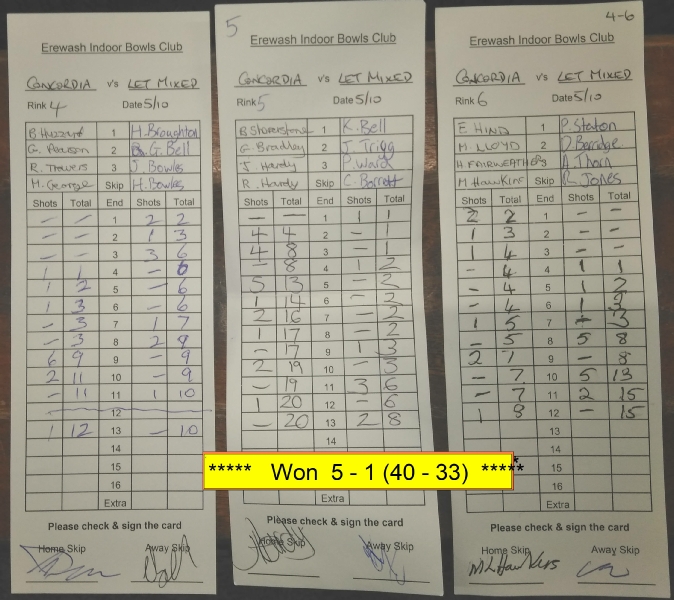 Erewash Indoor Bowls Club
CONCORDIA v's LET MIXED
Rink 4 Date 5/10
1 H. Broughton
G. Pearson 2 G. Bell
R. Travers 3 J. Bowles
M. George Skip H. Bowles
Shots Total End Shots Total
- - 1 2 2
- - 2 1 3
- - 3 3 6
1 1 4 - 6
1 2 5 - 6
1 3 6 - 6
- 3 7 1 7
- 3 8 2 9
6 9 9 - 9
2 11 10 - 9
- 11 11 1 10
12
1 12 13 - 10
14
15
16
Extra
Please check & sign the card
Home Skip Away Skip
5
Erewash Indoor Bowls Club
CONCORDIA v's LET MIXED
Rink 5 Date 5/10
1 K. Bell
G. Bradley 2 J. Trigg
J. Hardy 3 P. Ward
R. Hardy Skip C. Barrett
Shots Total End Shots Total
- - 1 1 1
4 4 2 - 1
4 8 3 - 1
- 8 4 1 2
5 13 5 - 2
1 14 6 - 2
2 16 7 - 2
1 17 8 - 2
- 17 9 1 3
2 19 10 - 3
- 19 11 3 6
1 20 12 - 6
- 20 13 2 8
14
Extra
Please check & sign the card
Home Skip Away Skip
4-6
Erewash Indoor Bowls Club
CONCORDIA v's LET MIXED
Rink 6 Date 5/10
E. HIND 1 P. Staton
M. LLOYD 2 D. Berridge
H FAIRWEATHER 3 A. Thorn
M HAWKINS Skip R. Jones
Shots Total End Shots Total
2 2 1 - -
1 3 2 - -
1 4 3 - -
- 4 4 1 1
- 4 5 1 2
- 4 6 1 3
1 5 7 - 3
- 5 8 5 8
2 7 9 - 8
- 7 10 5 13
- 7 11 2 15
1 8 12 - 15
13
14
15
16
Extra
Please check & sign the card
Home Skip Away Skip
M L Hawkins
***** Won 5 - 1 (40 - 33) *****